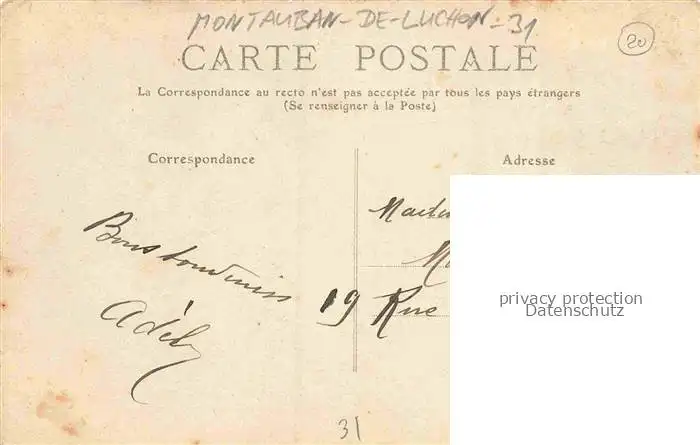 MONTAUBAN-DE-LUCHON-31
20
CARTE POSTALE
La Correspondance au recto n'est pas acceptée par tous les pays étrangers
(Se renseigner à la Poste)
Correspondance
Adresse
Bons souvenirs
Adèle
19 Rue
privacy protection
Datenschutz
31